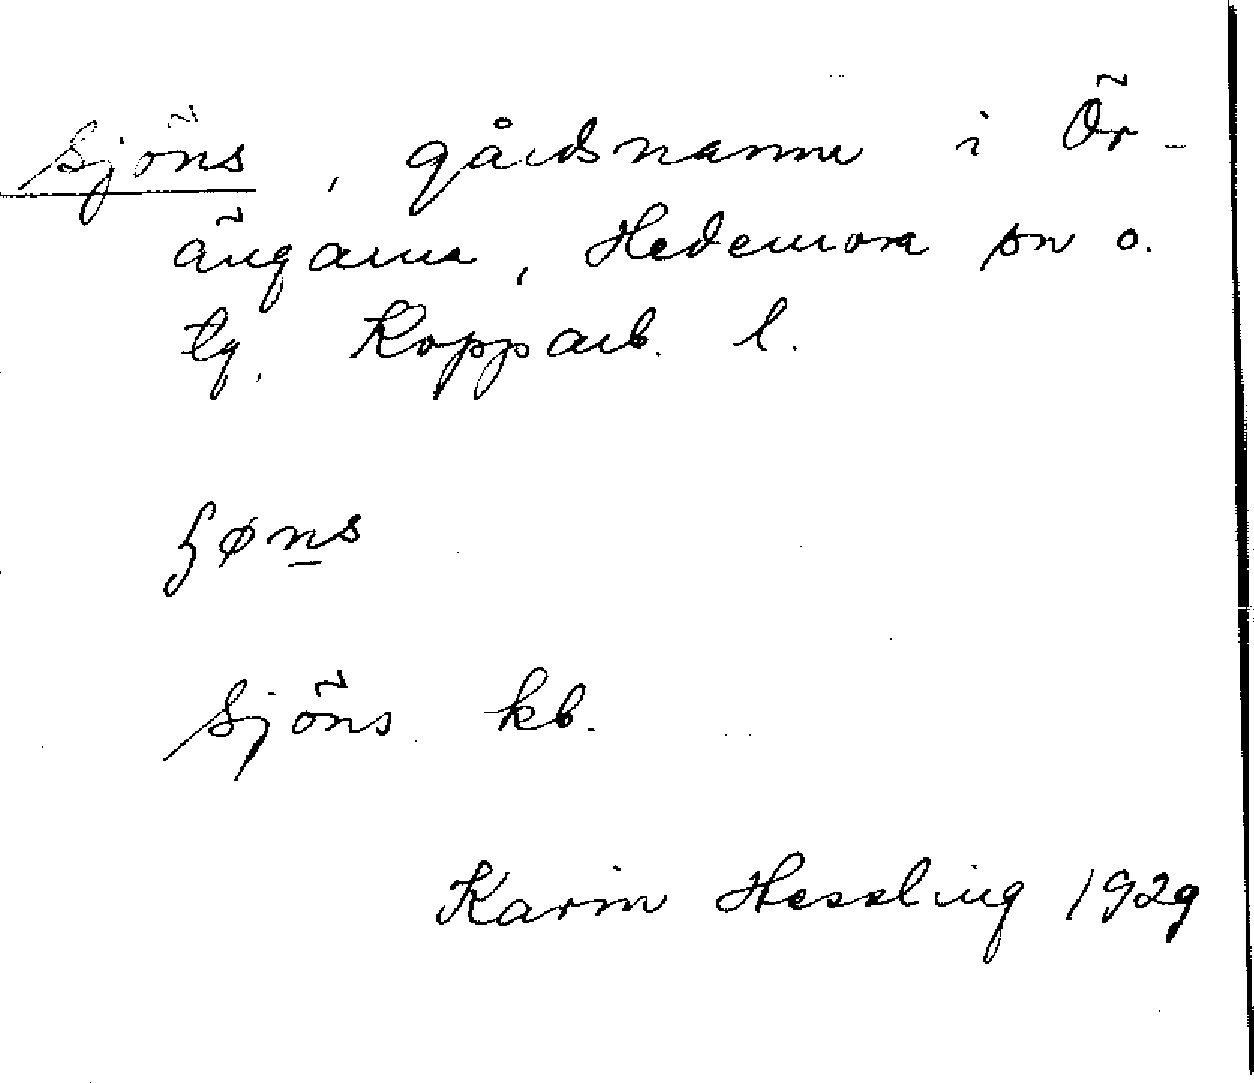 Sjöns, gårdsnamn i Ör-
ängarna, Hedemora sn o.
tg. Kopparb. l.
ʂøns
Sjöns kb.
Karin Hessling 1929